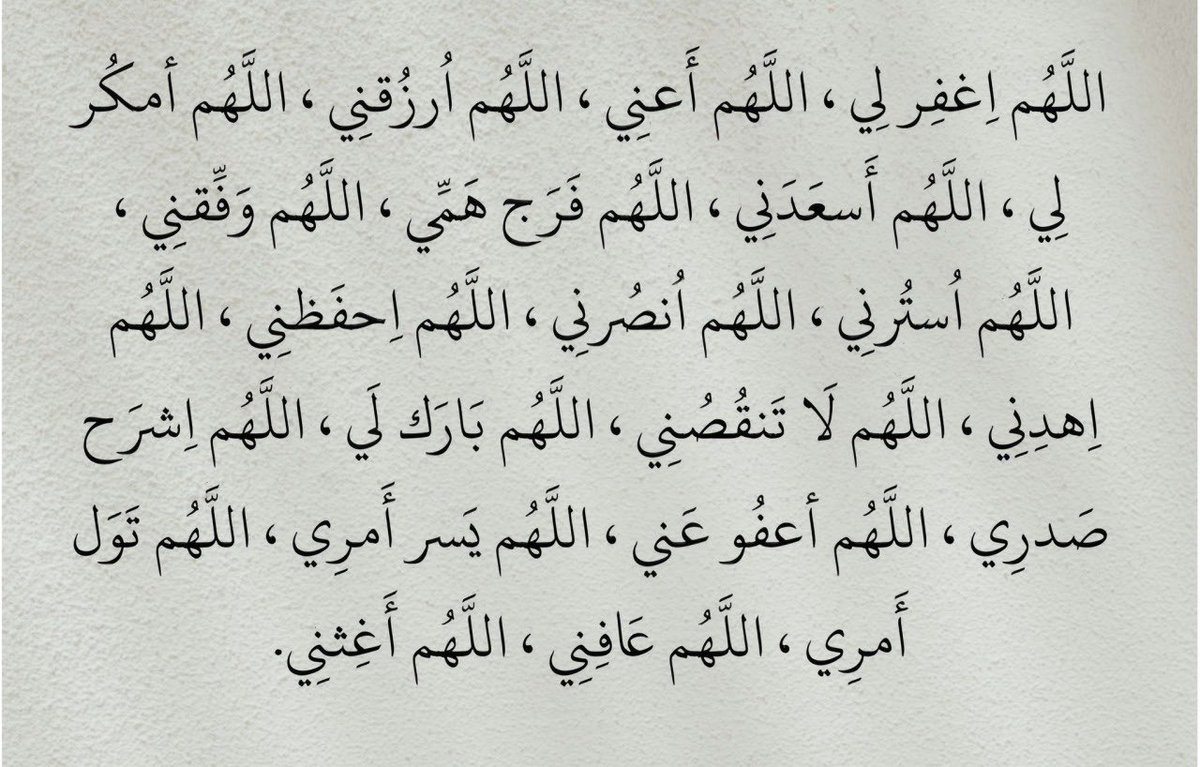 اللَّهُم اِغفِر لِي ، اللَّهُم أَعنِي ، اللَّهُم اُرزُقنِي ، اللَّهُم أمكُر
لِي ، اللَّهُم أَسعَدَنِي ، اللَّهُم فَرَج هَمِّي ، اللَّهُم وَفِّقنِي ،
اللَّهُم اُستُرنِي ، اللَّهُم اُنصُرنِي ، اللَّهُم اِحفَظنِي ، اللَّهُم
اِهدِنِي ، اللَّهُم لَا تَنقُصُنِي ، اللَّهُم بَارَك لَي ، اللَّهُم اِشرَح
صَدرِي ، اللَّهُم أعفُو عَني ، اللَّهُم يَسر أَمرِي ، اللَّهُم تَوَل
أَمرِي ، اللَّهُم عَافِنِي ، اللَّهُم أَغِثنِي.